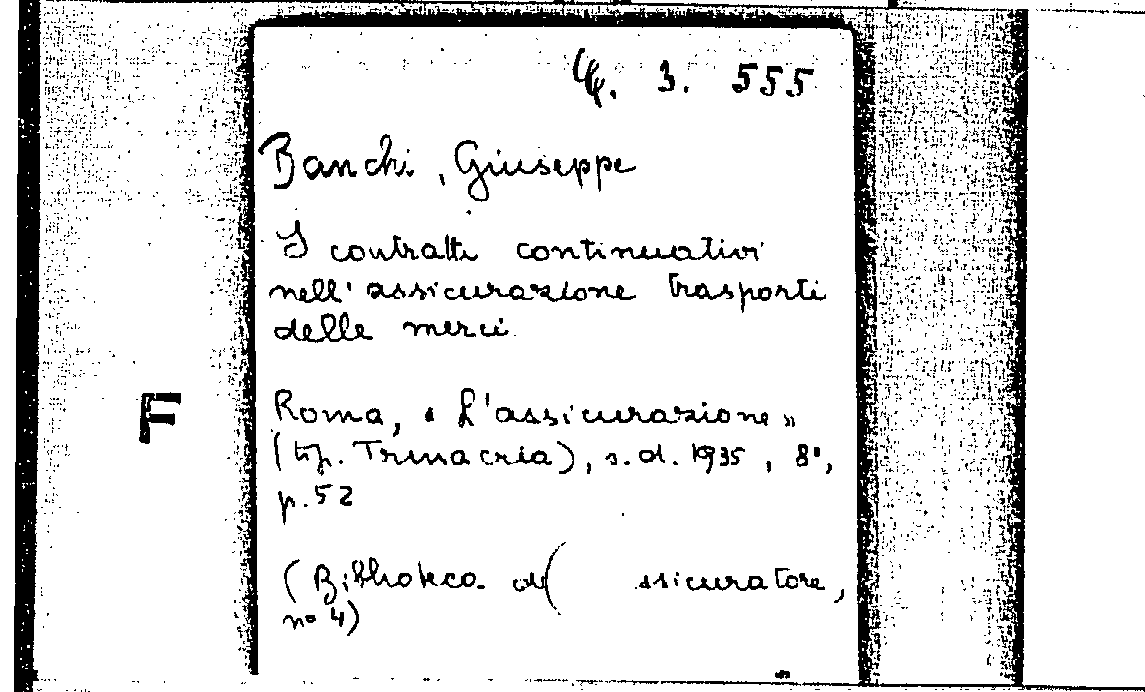 3. 555
Banchi, Giuseppe
I contratti continuativi
nell'assicurazione trasporti
delle merci.
F
Roma, « L'assicurazione»
(tip. Trinacria), s.d. 1935, 8°,
p. 52
(Biblioteca ssicuratore,
n° 4)